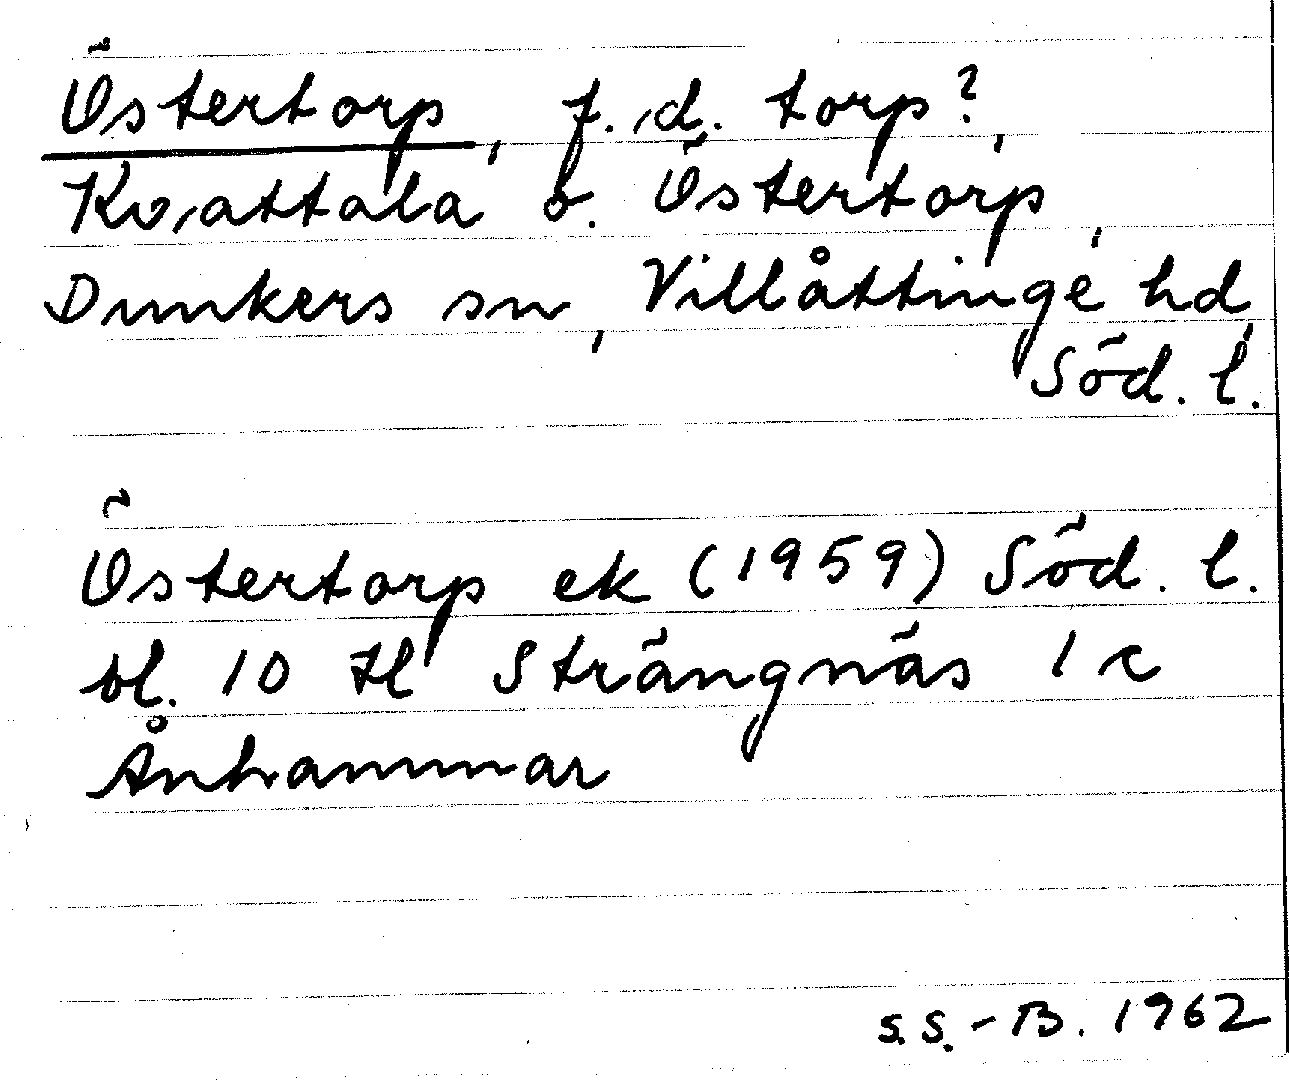 Östertorp, f.d. torp?,
Kvattala o. Östertorp,
Dunkers sn, Villåttinge hd,
Söd. l.
Östertorp ek (1959) Söd. l.
bl. 10 tl Strängnäs 1 c
Ånhammar
S.S.-B. 1962